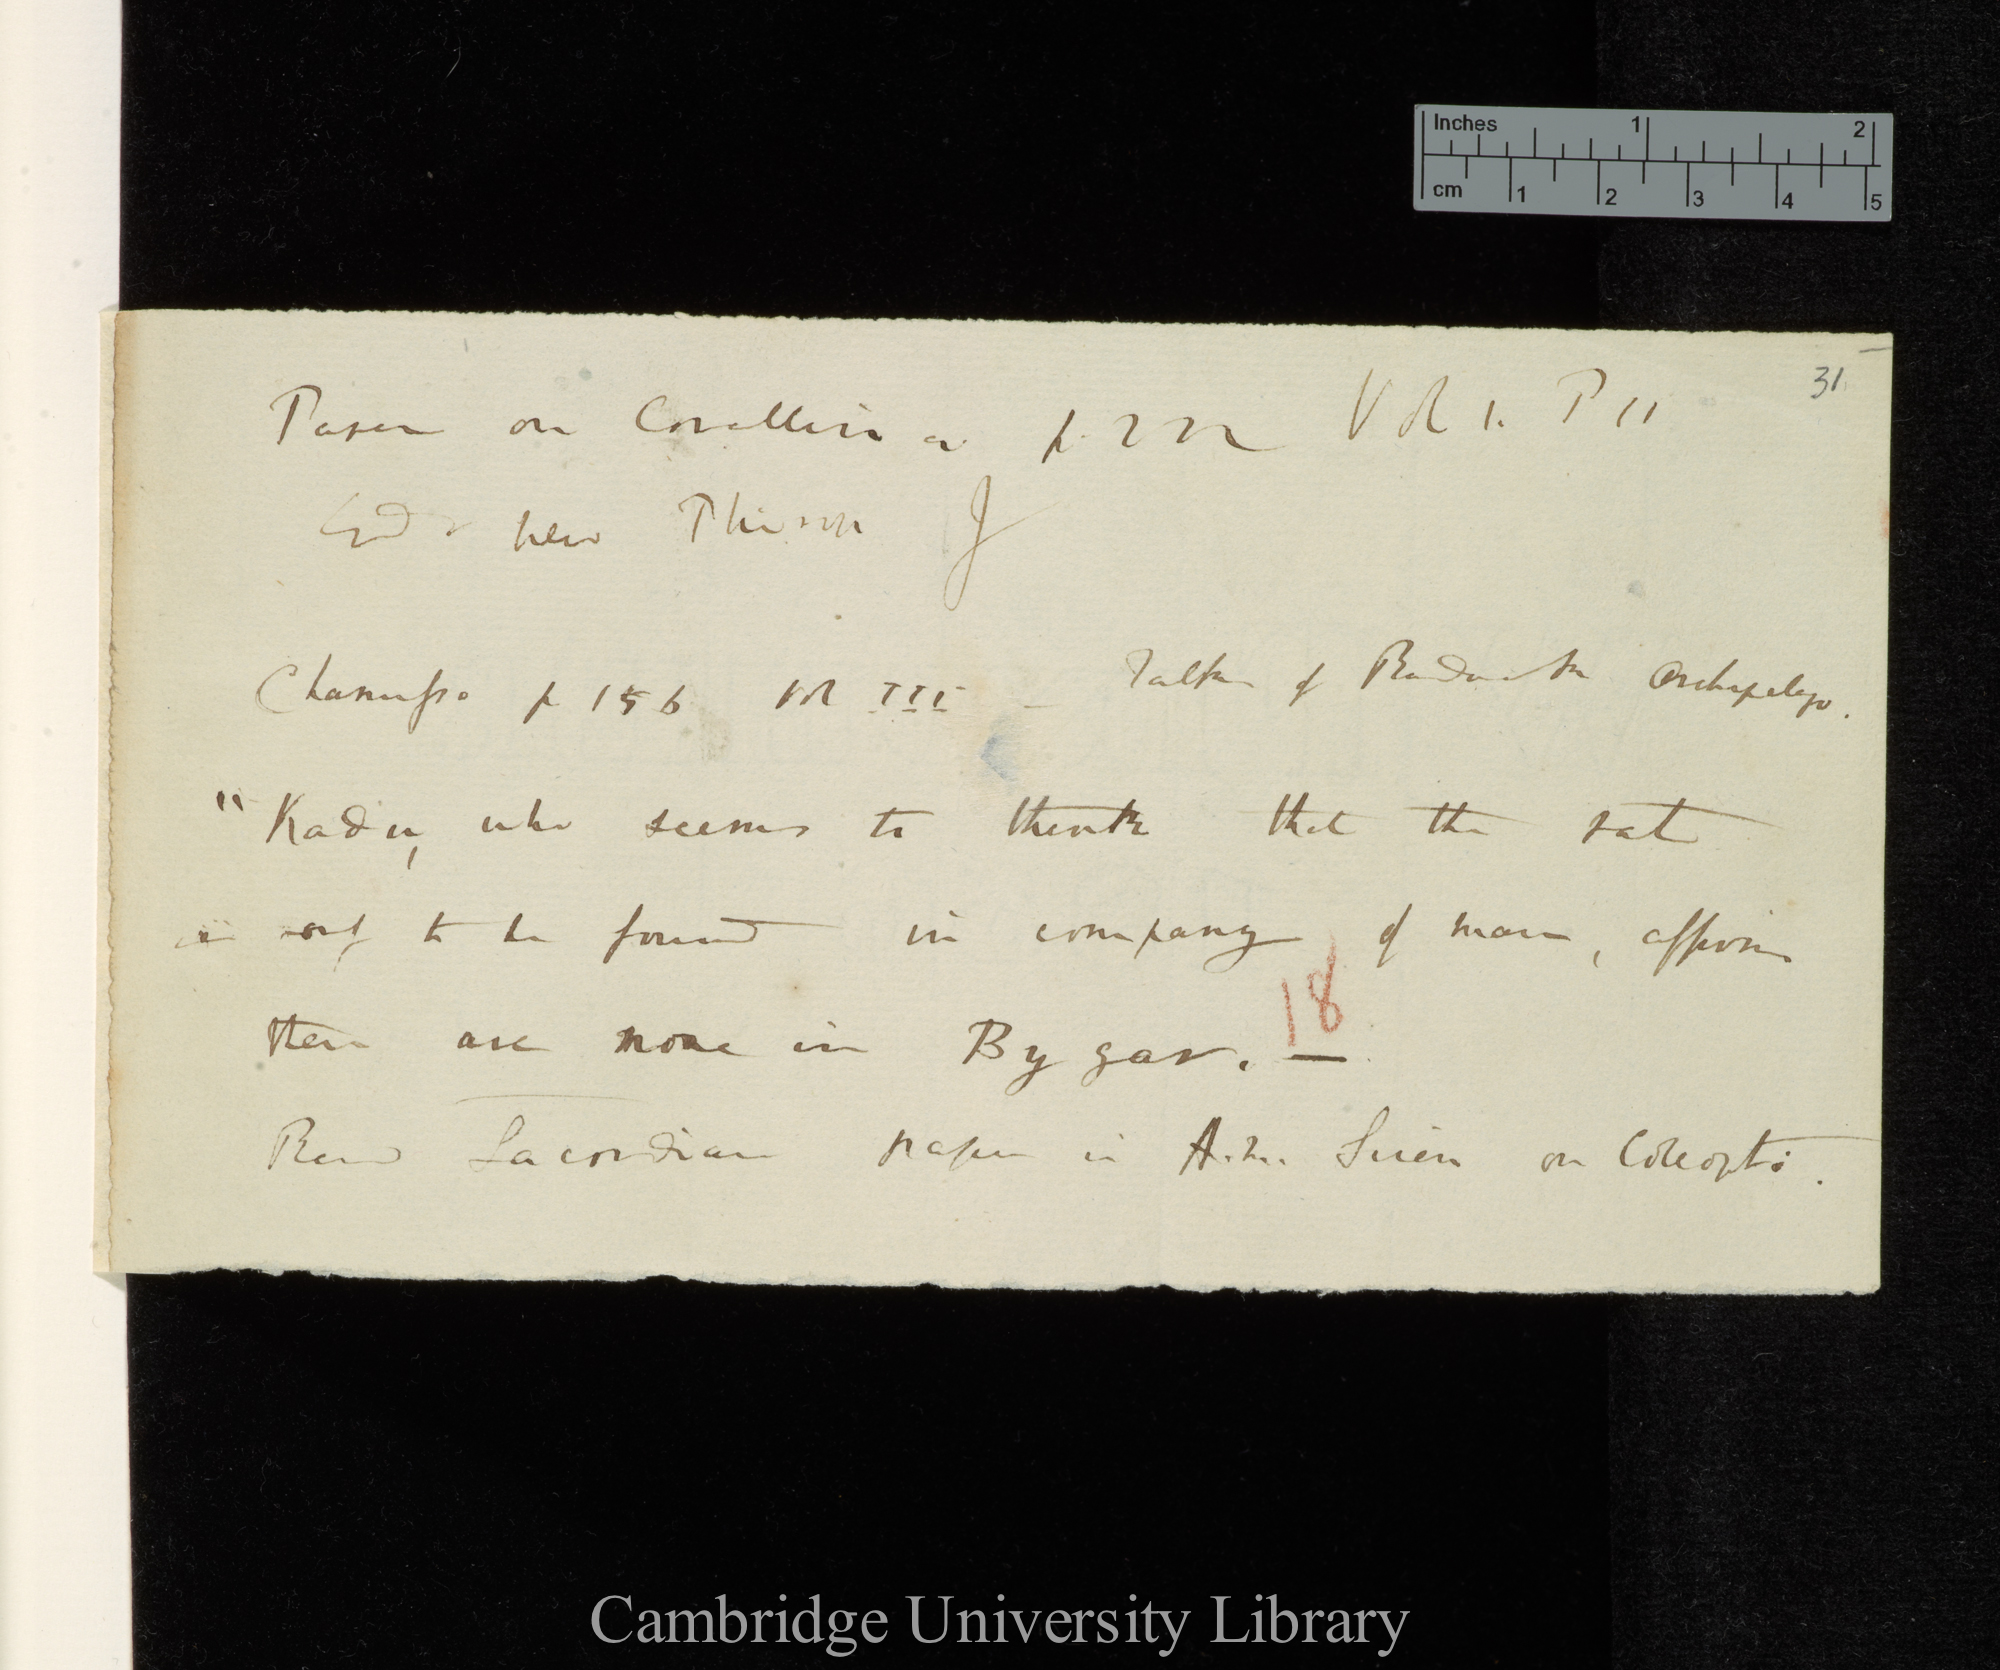 31
Paper on Corallina p. 222 Vol 1. P 11
Ed. New Philosoph J
Chamisso p 156 Vol III – Talks of Radack Archipelago.
"Kadu, who seems to think that the rat
is only to be found in company of man, affirms
there are none in Bygar. —
18
Read Lacordiare paper in Ann. Scien on Coleopt.
Inches 1 2
cm 1 2 3 4 5
Cambridge University Library